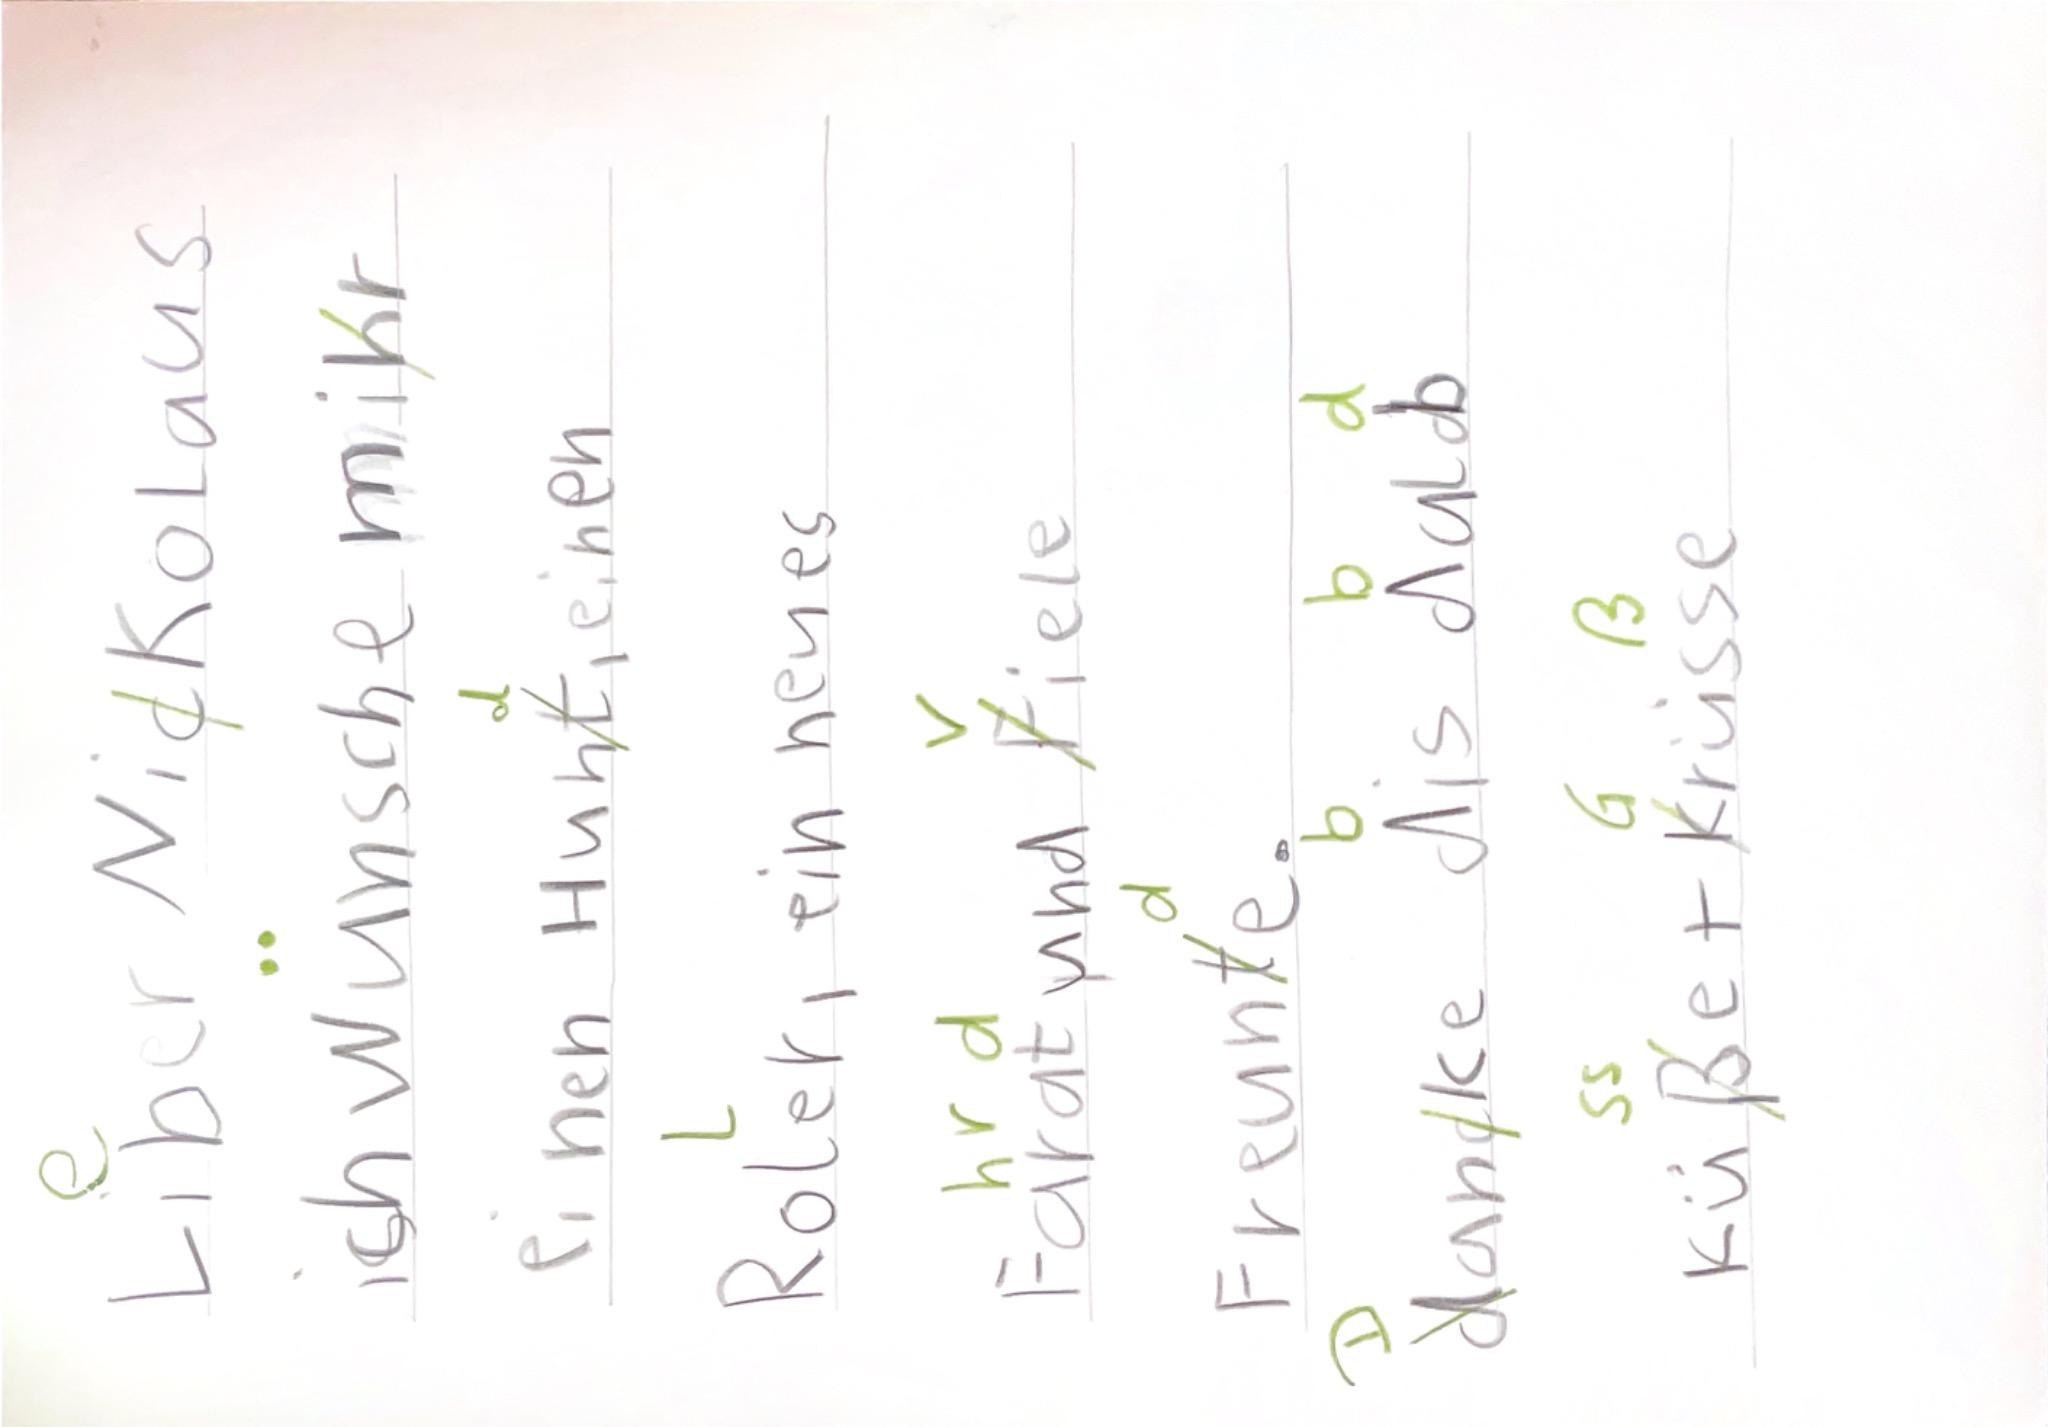 e
Liber NicKoLaus
..
ich wunsche mihr
d
einen Hunt, einen
L
Roler, ein neues
hr d V
Farat und Fiele
d
Freunte.
D b b d
dandke dis daldb
ss G ß
Küße + Krüsse